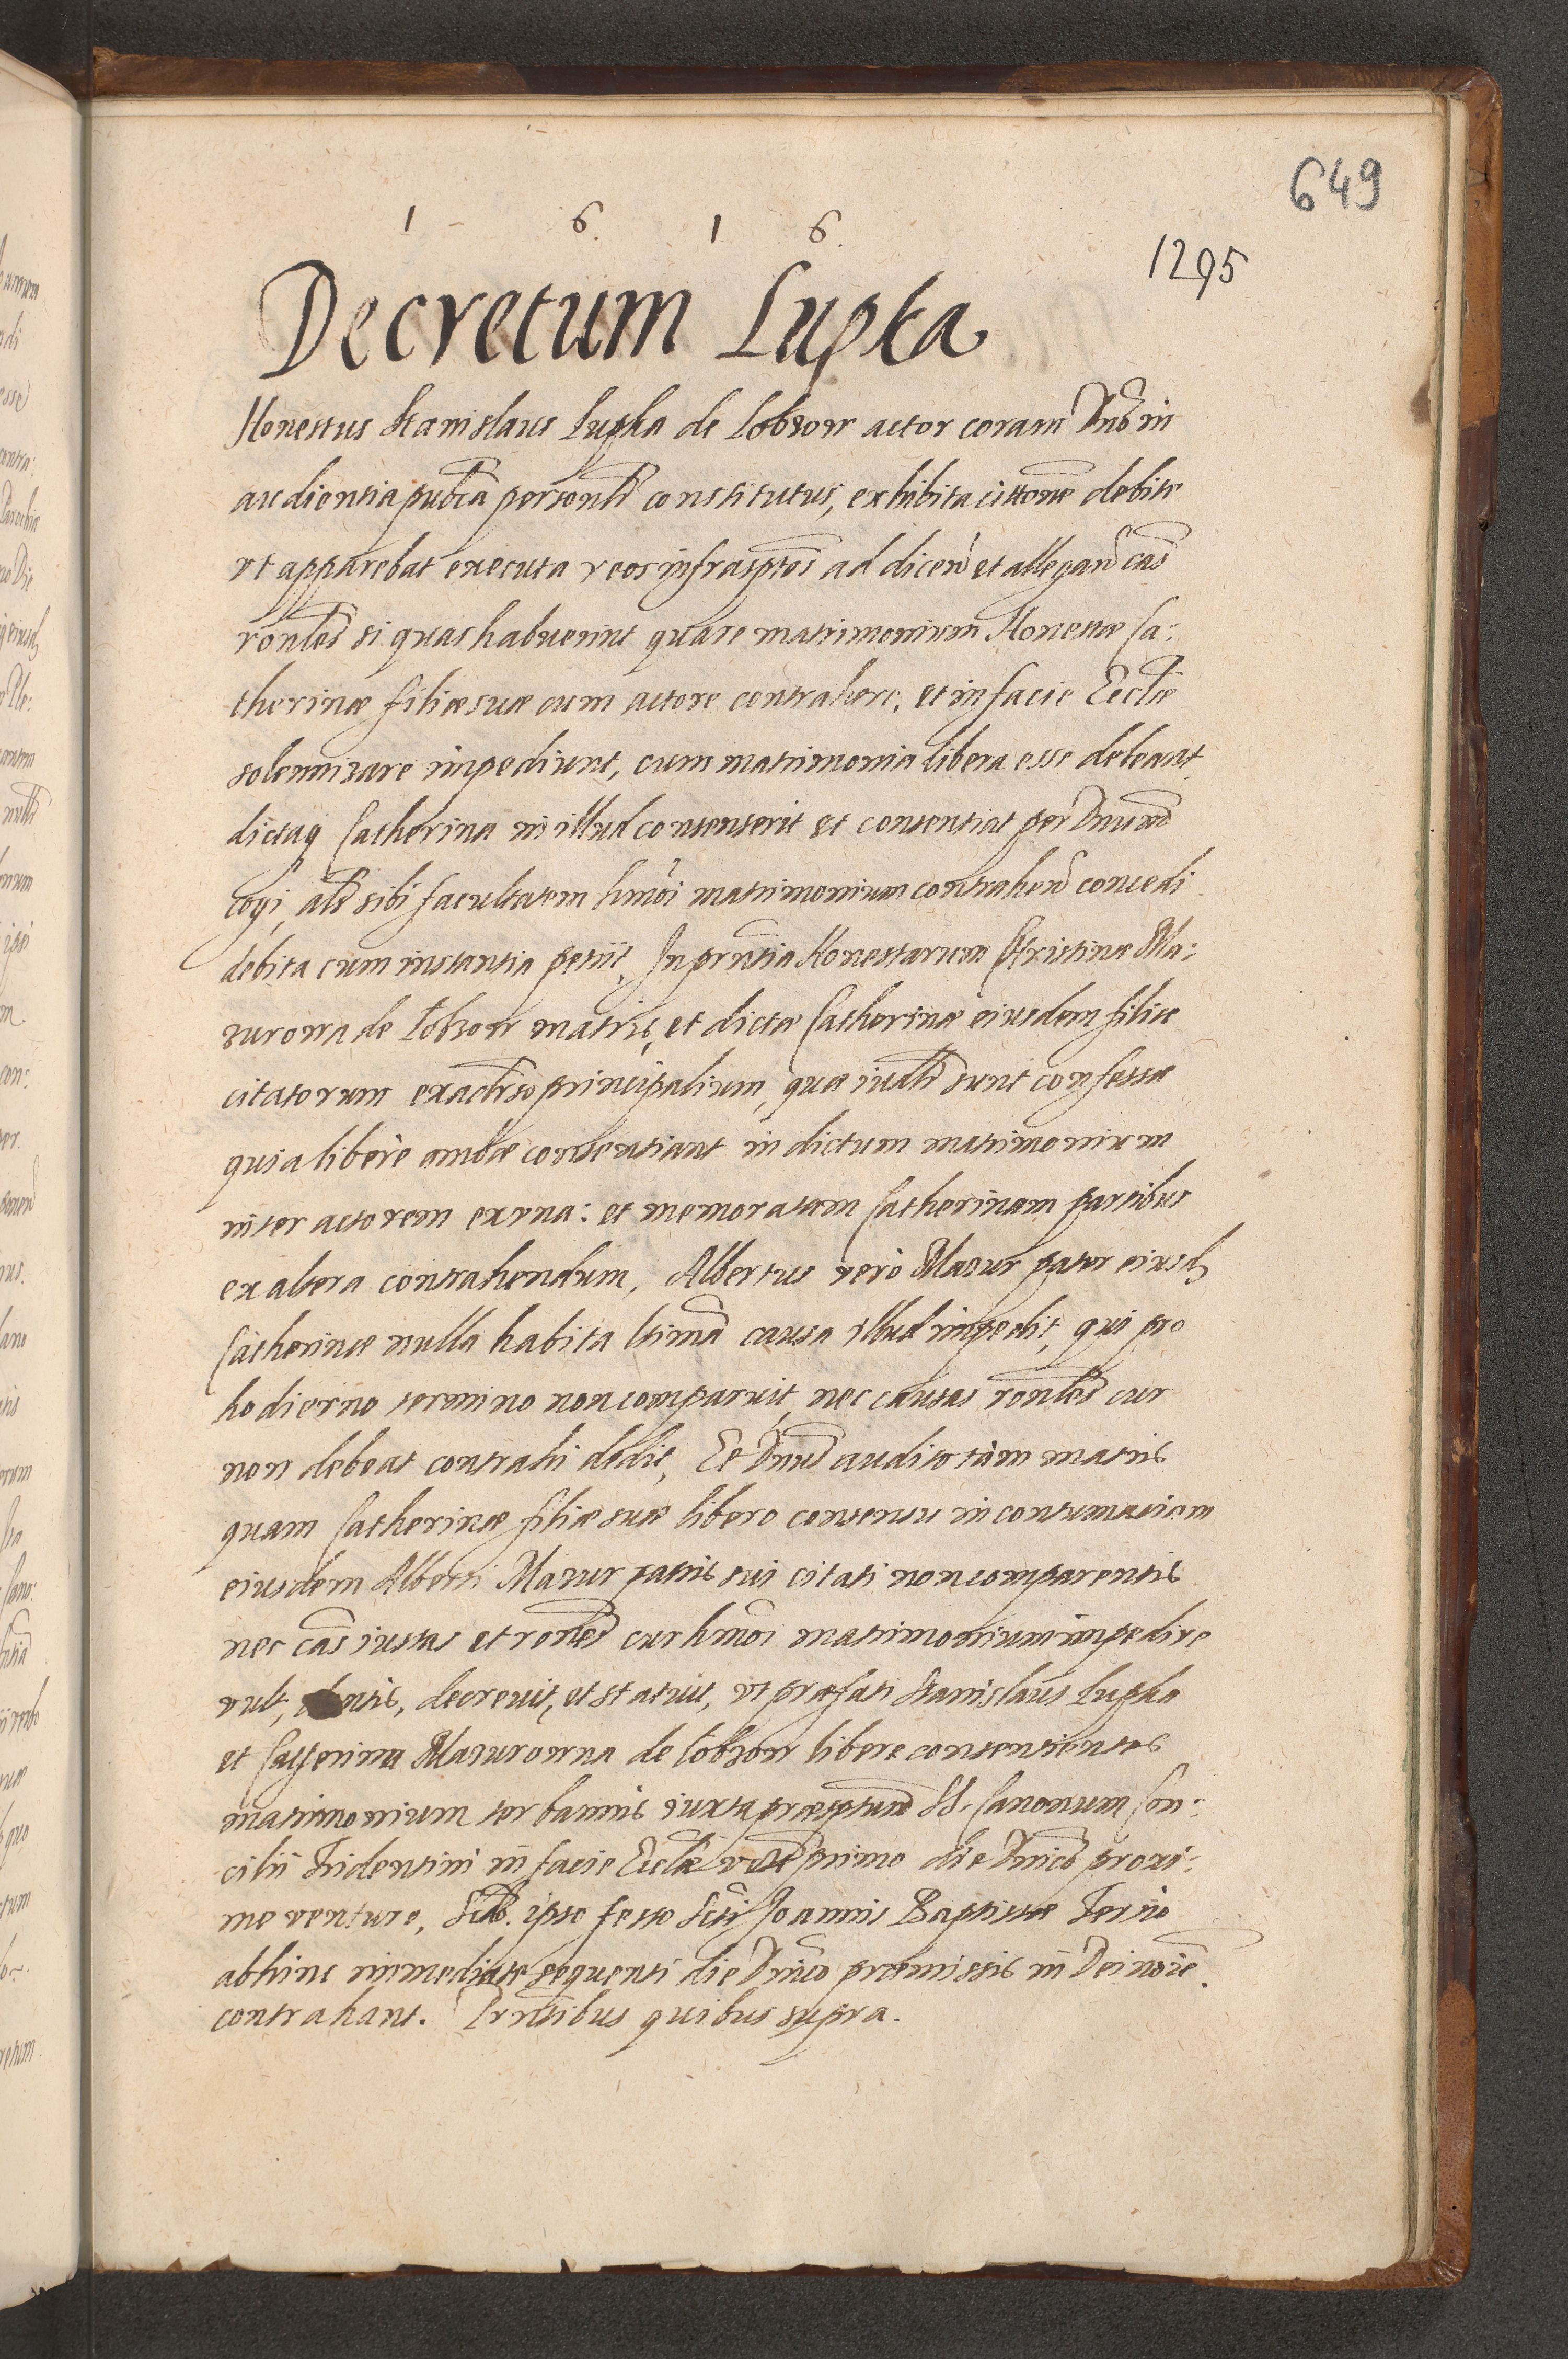 649
1 6 1 6
1295
Decretum Lupka
Honestus Stanislaus Lupka de Lobzow actor coram Dno in
audientia publca personlr constitutus, exhibita citone debite
vt apparebat executa reos infrasptos ad dicen et allegan cas
ronles si quas habuerint quare matrimonium Honestæ Ca:
therinæ filiæ suæ cum actore contrahere, et in facie Eccliæ
solennizare impediunt, cum matrimonia libera esse debeant,
dictaq Catherina in illud consenserit et consentiat per Dnum
cogi, als sibi facultatem hmoi matrimonium contrahen concedi
debita cum instantia petiit, In prntia Honestarum Christinæ Ma:
zurowa de Lobzow matris, et dictæ Catherinæ eiusdem filiæ
citatorum ex aduerso principalium, quæ iudlr sunt confessæ
quia liberè ambæ consentiant in dictum matrimonium
inter actorem ex vna: et memoratam Catherinam partibus
ex altera contrahendum, Albertus verò Mazur pater eiusd
Catherinæ nulla habita ltima causa illud impedit, qui pro
hodierno termino non comparuit, nec causas ronles cur
non debeat contrahi dedit, Et Dnus audito tàm matris
quam Catherinæ filiæ suæ libero consensu in contumaciam
eiusdem Alberti Mazur patris sui citati non comparentis
nec cas iustas et ronles cur hmoi matrimonium impedire
vult, dntis, decreuit, et statuit, vt præfati Stanislaus Lupka
et Catherina Mazurowna de Lobzow libere consentientes
matrimonium ter bannis iuxta præsptum SS. Canonum Con:
cilii Tridentini in facie Eccliæ vide primo die Dnico proxi:
me venturo, Scdo. ipso festo Scti Joannis Baptistæ Tertio
abhinc immediate sequenti die Dnico præmissis in Dei noie
contrahant. Prntibus quibus supra.